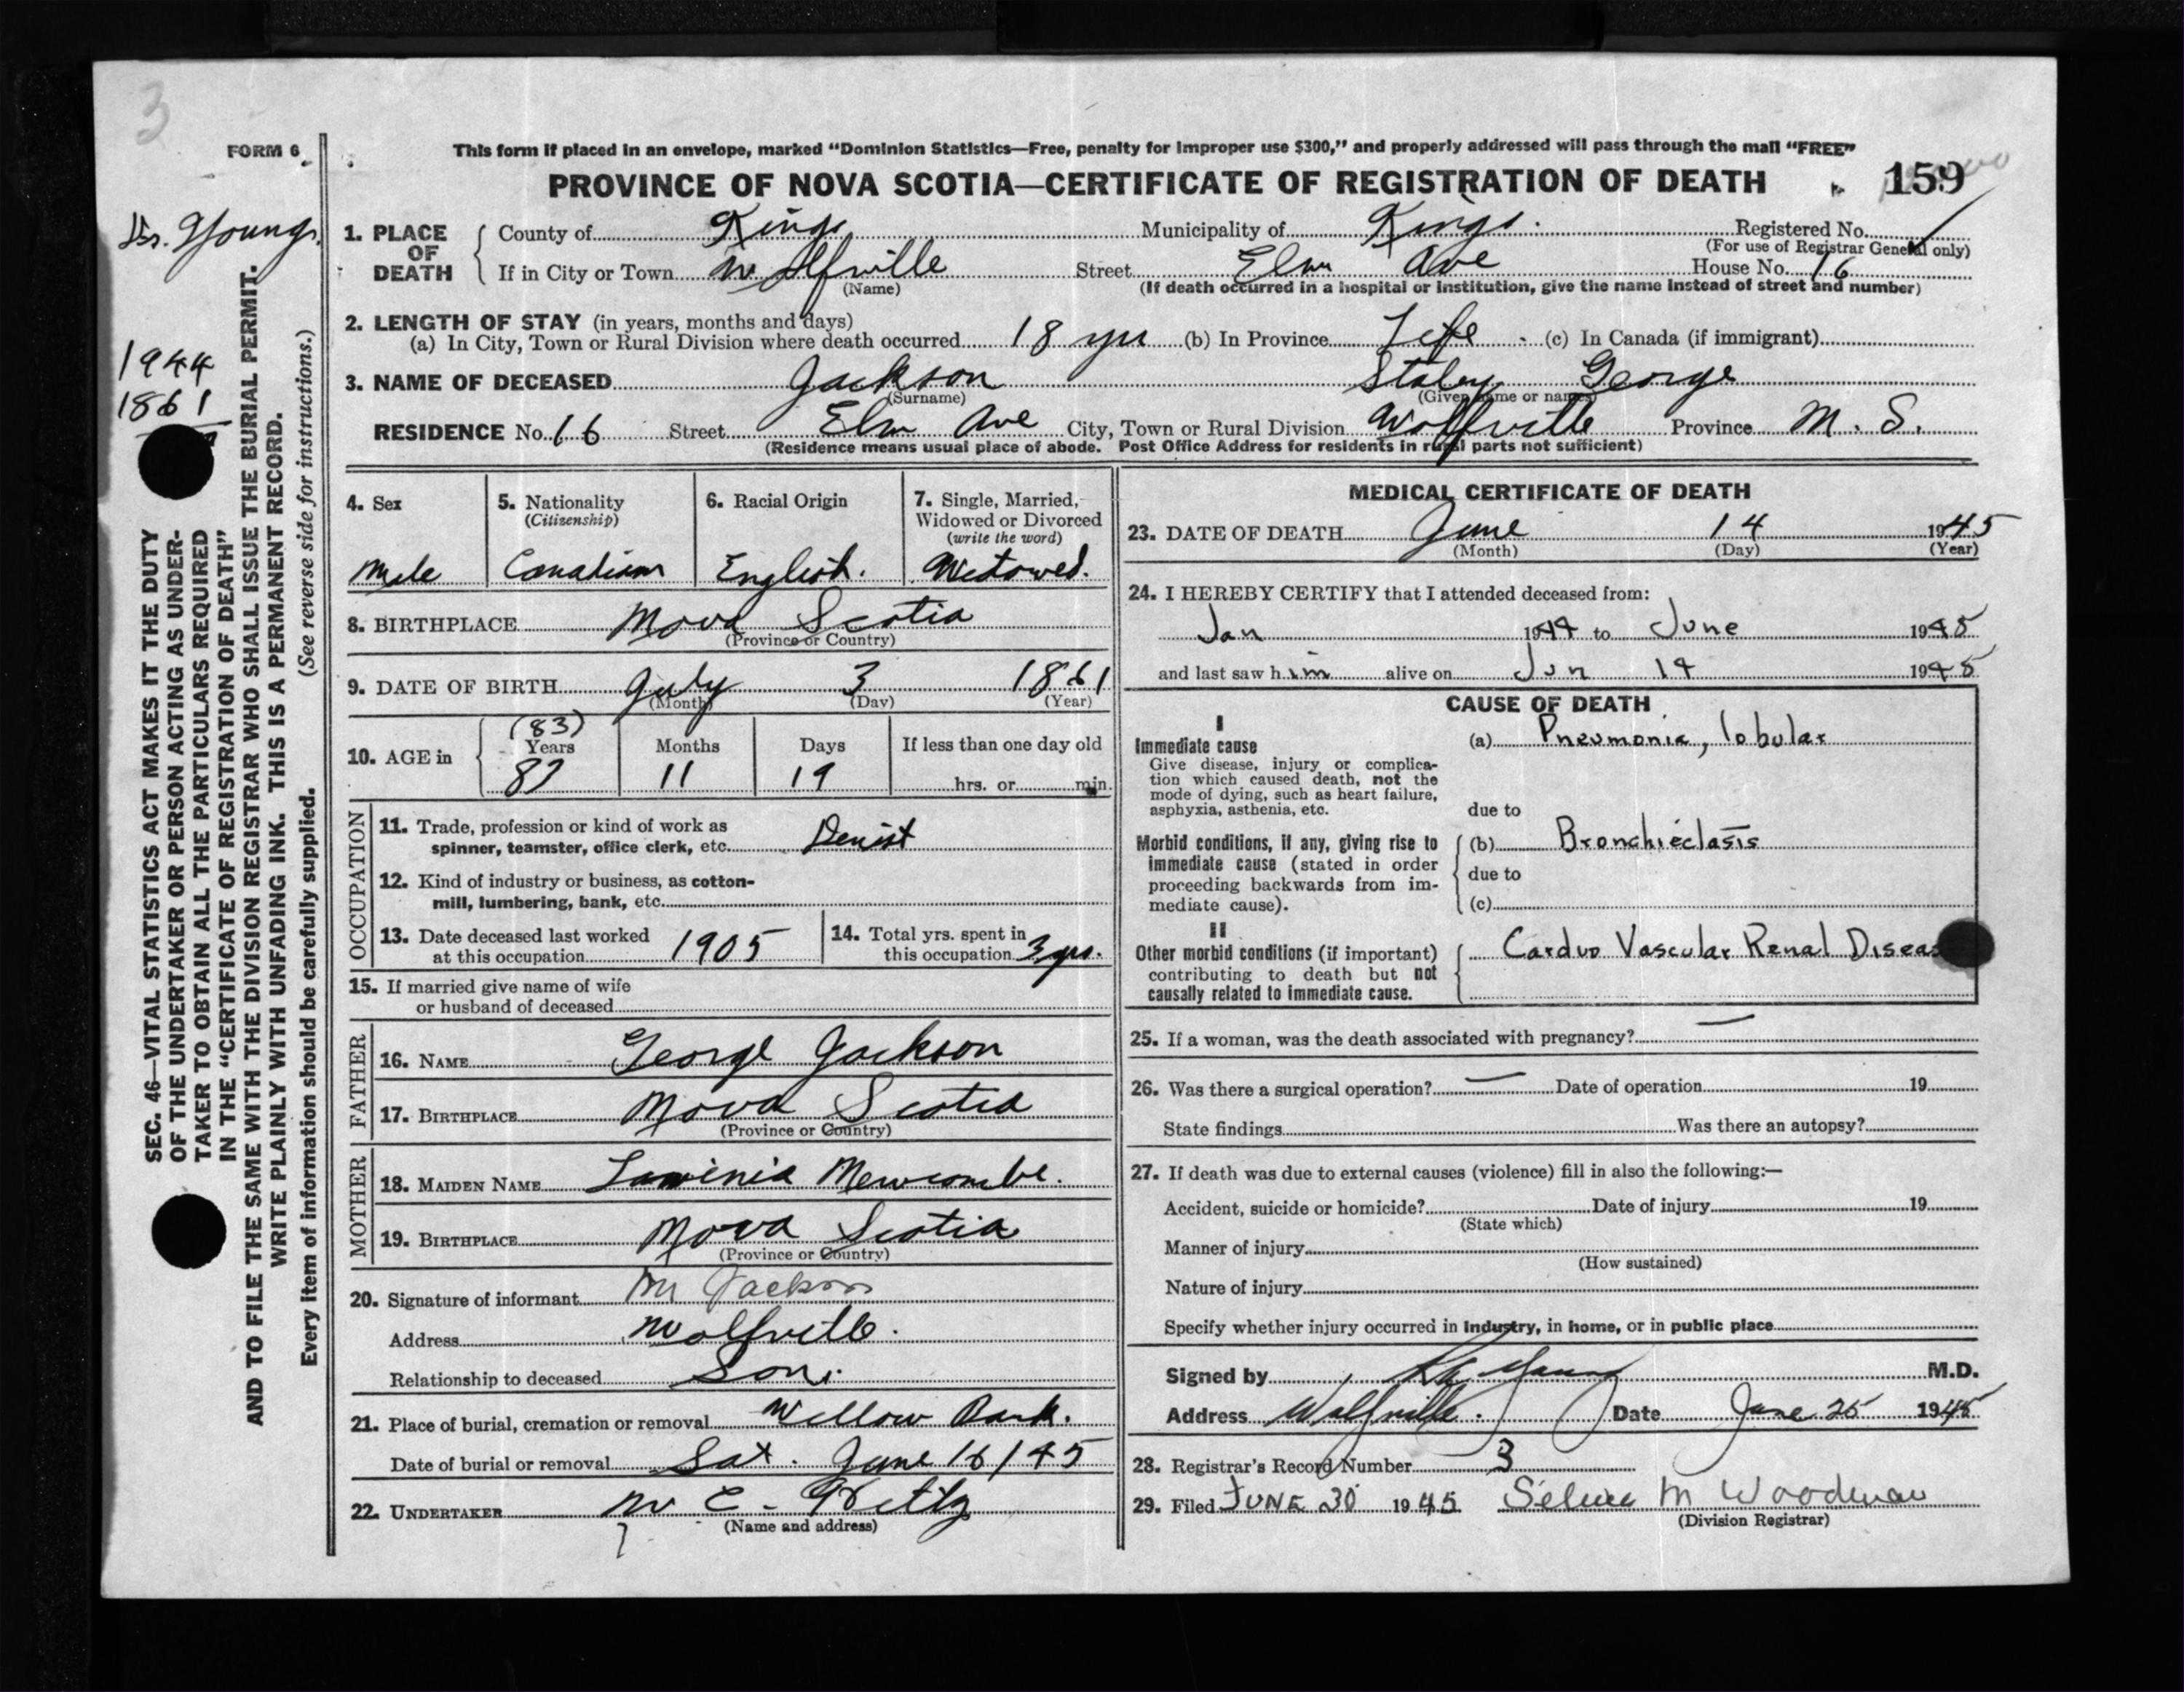 3
FORM 6
This form if placed in an envelope, marked “Dominion Statistics—Free, penalty for improper use $300,” and properly addressed will pass through the mail “FREE”
PROVINCE OF NOVA SCOTIA—CERTIFICATE OF REGISTRATION OF DEATH 159
Dr. Young
1944
1861
SEC. 46—VITAL STATISTICS ACT MAKES IT THE DUTY
OF THE UNDERTAKER OR PERSON ACTING AS UNDER-
TAKER TO OBTAIN ALL THE PARTICULARS REQUIRED
IN THE “CERTIFICATE OF REGISTRATION OF DEATH”
AND TO FILE THE SAME WITH THE DIVISION REGISTRAR WHO SHALL ISSUE THE BURIAL PERMIT.
WRITE PLAINLY WITH UNFADING INK. THIS IS A PERMANENT RECORD.
Every item of information should be carefully supplied. (See reverse side for instructions.)
1. PLACE OF DEATH County of Kings Municipality of Kings. Registered No.
(For use of Registrar General only)
If in City or Town Wolfville Street Elm Ave House No. 16
(Name) (If death occurred in a hospital or institution, give the name instead of street and number)
2. LENGTH OF STAY (in years, months and days)
(a) In City, Town or Rural Division where death occurred 18 yrs (b) In Province Life (c) In Canada (if immigrant)
3. NAME OF DECEASED Jackson George
(Surname) (Given name or names)
RESIDENCE No. 16 Street Elm Ave City, Town or Rural Division Wolfville Province N. S.
(Residence means usual place of abode. Post Office Address for residents in rural parts not sufficient)
4. Sex
Male
5. Nationality
(Citizenship)
Canadian
6. Racial Origin
English.
7. Single, Married,
Widowed or Divorced
(write the word)
Widowed.
8. BIRTHPLACE Nova Scotia
(Province or Country)
9. DATE OF BIRTH July 3 1861
(Month) (Day) (Year)
10. AGE in (83)
Years Months Days If less than one day old
11 19 hrs. or min.
OCCUPATION
11. Trade, profession or kind of work as
spinner, teamster, office clerk, etc. Denist
12. Kind of industry or business, as cotton-
mill, lumbering, bank, etc.
13. Date deceased last worked
at this occupation 1905
14. Total yrs. spent in
this occupation 3 yrs.
15. If married give name of wife
or husband of deceased
FATHER
16. NAME George Jackson
17. BIRTHPLACE Nova Scotia
(Province or Country)
MOTHER
18. MAIDEN NAME Lavinia Newcombe.
19. BIRTHPLACE Nova Scotia
(Province or Country)
20. Signature of informant Jackson
Address Wolfville.
Relationship to deceased Son.
21. Place of burial, cremation or removal Willow Bank.
Date of burial or removal Sat. June 16/45
22. UNDERTAKER
(Name and address)
MEDICAL CERTIFICATE OF DEATH
23. DATE OF DEATH June 14 1945
(Month) (Day) (Year)
24. I HEREBY CERTIFY that I attended deceased from:
Jan 1944 to June 1945
and last saw him alive on Jun 14 1945
CAUSE OF DEATH
I
Immediate cause
Give disease, injury or complica-
tion which caused death, not the
mode of dying, such as heart failure,
asphyxia, asthenia, etc.
(a) Pneumonia, lobular
due to
Morbid conditions, if any, giving rise to
immediate cause (stated in order
proceeding backwards from im-
mediate cause).
(b) Bronchiectasis
due to
(c)
II
Other morbid conditions (if important)
contributing to death but not
causally related to immediate cause.
Cardio Vascular Renal Diseas
25. If a woman, was the death associated with pregnancy? —
26. Was there a surgical operation? — Date of operation 19
State findings Was there an autopsy?
27. If death was due to external causes (violence) fill in also the following:—
Accident, suicide or homicide? Date of injury 19
(State which)
Manner of injury
(How sustained)
Nature of injury
Specify whether injury occurred in industry, in home, or in public place
Signed by Young M.D.
Address Wolfville. Date June 25 1945
28. Registrar's Record Number 3
29. Filed JUNE 30 1945 M Woodman
(Division Registrar)